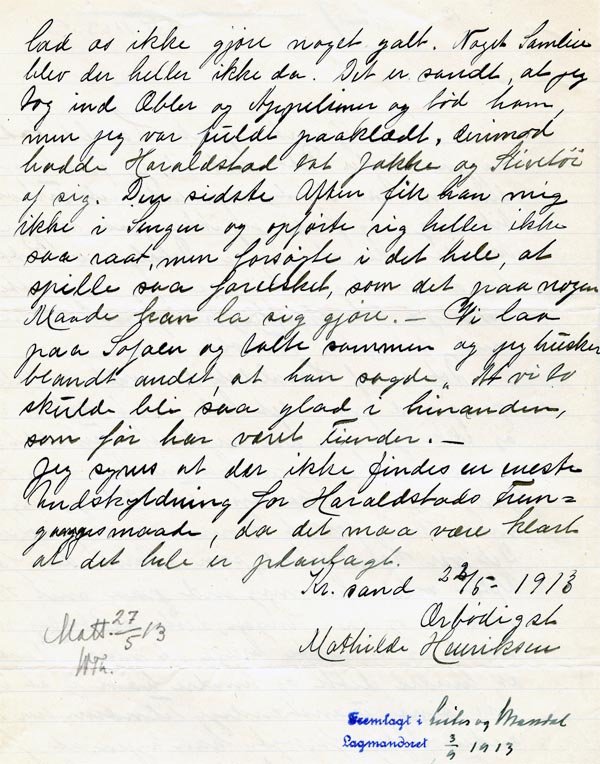 lad os ikke gjøre noget galt. Noget Samleie
blev der heller ikke da. Det er sandt, at jeg
tog ind Æbler og Appelsiner og bød ham,
men jeg var fuldt paaklædt, derimod
hadde Haraldstad tat Jakke og Stivetøi
af sig. Den sidste Aften fik han mig
ikke i Sengen og opførte sig heller ikke
saa raat, men forsøgte i det hele, at
spille saa forelsket, som det paa nogen
Maade kan la sig gjøre. — Vi laa
paa Sofaen og talte sammen og jeg husker
blandt andet, at han sagde „At vi to
skulde bli saa glad i hinanden,
som før har været Fiender. —
Jeg synes at der ikke findes en eneste
Undskyldning for Haraldstads Frem=
gangsmaade, da det maa være klart
at det hele er planlagt.
Kr.sand 23/5 - 1913
Ærbødigst
Mathilde Henriksen
Matt. 27/5 13
Fremlagt i Lister og Mandal
Lagmandsret 3/9 1913